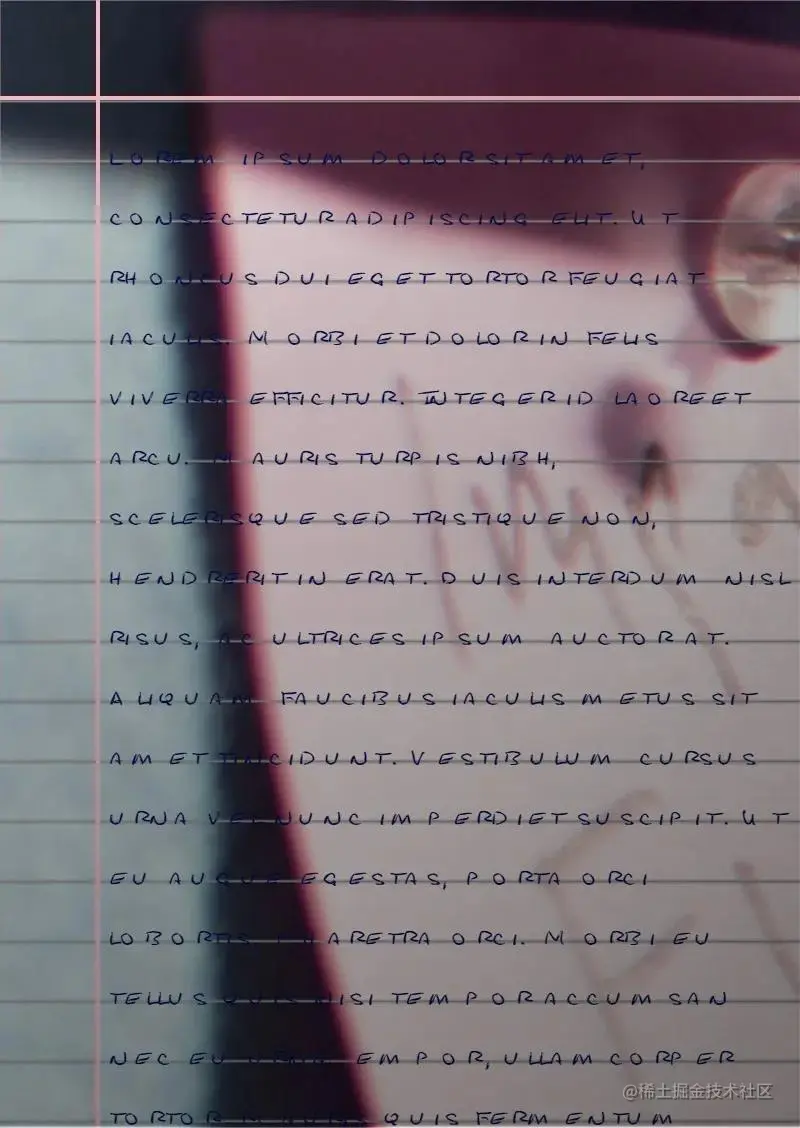 LOREM IPSUM DOLOR SIT AMET,
CONSECTETUR ADIPISCING ELIT. UT
RHONCUS DUI EGET TORTOR FEUGIAT
IACULIS. MORBI ET DOLOR IN FELIS
VIVERRA EFFICITUR. INTEGER ID LAOREET
ARCU. MAURIS TURPIS NIBH,
SCELERISQUE SED TRISTIQUE NON,
HENDRERIT IN ERAT. DUIS INTERDUM NISL
RISUS, AC ULTRICES IPSUM AUCTOR AT.
ALIQUAM FAUCIBUS IACULIS METUS SIT
AMET TINCIDUNT. VESTIBULUM CURSUS
URNA VEL NUNC IMPERDIET SUSCIPIT. UT
EU AUGUE EGESTAS, PORTA ORCI
LOBORTIS, PHARETRA ORCI. MORBI EU
TELLUS QUIS NISI TEMPOR ACCUMSAN
NEC EU EMPOR, ULLAMCORPER
TORTOR QUIS FERMENTUM
@稀土掘金技术社区